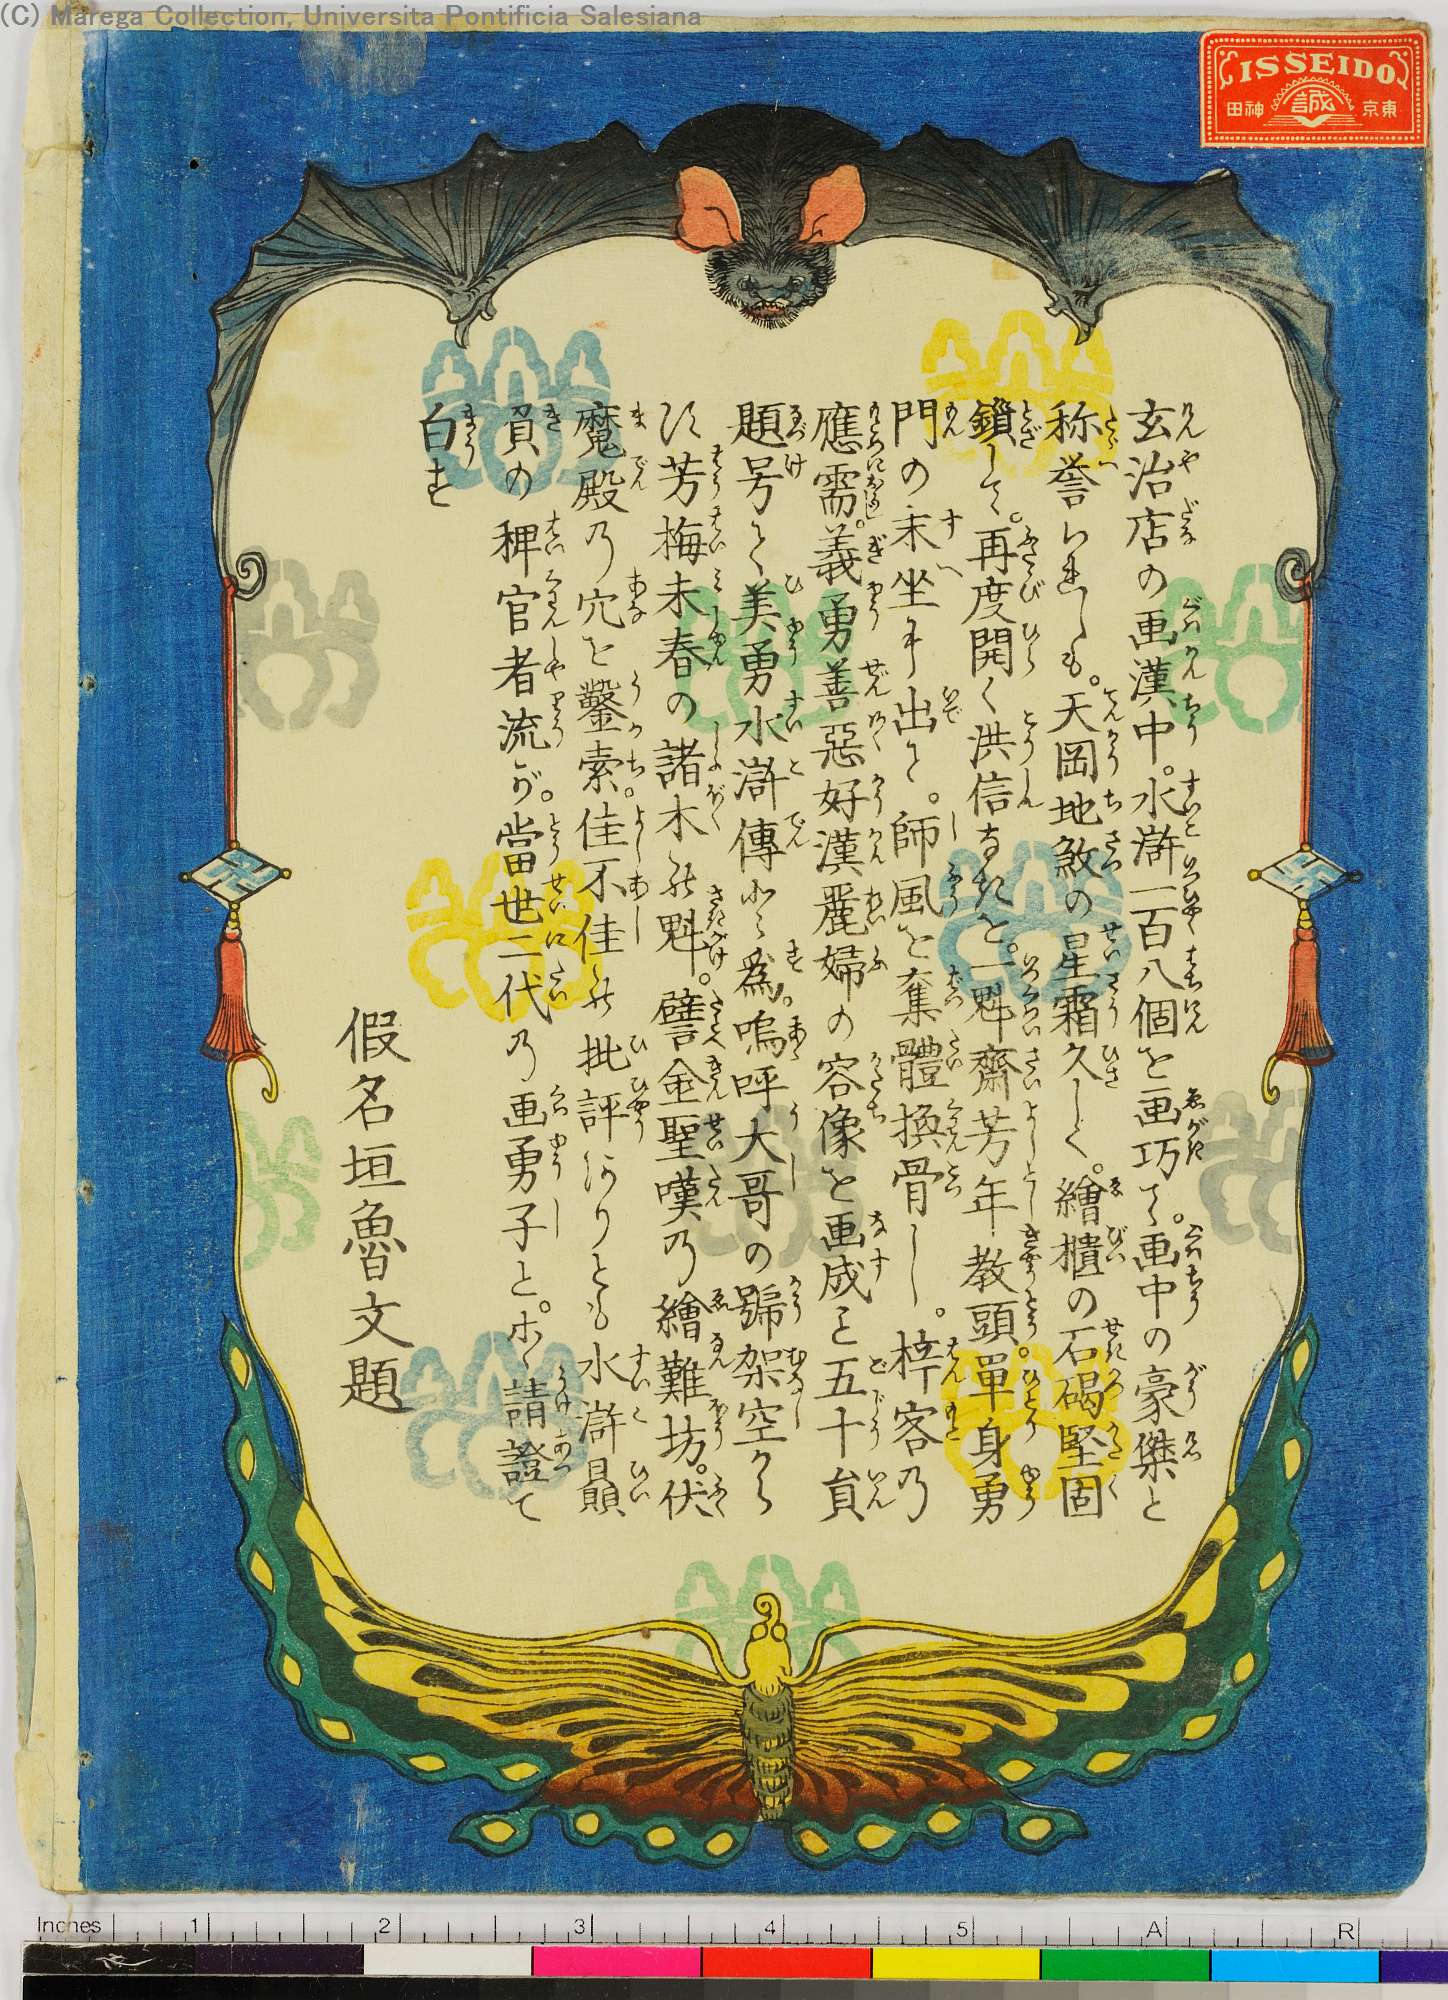 (C) Marega Collection, Universita Pontificia Salesiana
ISSEIDO
誠
東京
神田
玄治店の画漢中。水滸一百八個を画巧て。画中の豪傑と
称誉られしも。天岡地煞の星霜久しく。繪櫃の石碣堅固
鎖して。再度開く洪信なきを。一魁齋芳年教頭單身勇
門の末坐に出て。師風を奪體換骨し。梓客乃
應需。義勇善惡好漢麗婦の容像を画成こと五十員
題号て美勇水滸傳と為。嗚呼大哥の號架空から
ず芳梅未春の諸木の魁。譬金聖嘆乃繪難坊。伏
魔殿乃穴を鑿索佳不佳の批評ありとも水滸贔
負の稗官者流が。當世二代乃画勇子と。ホヽ請證て
白す
假名垣魯文題
Inches 1 2 3 4 5 A R